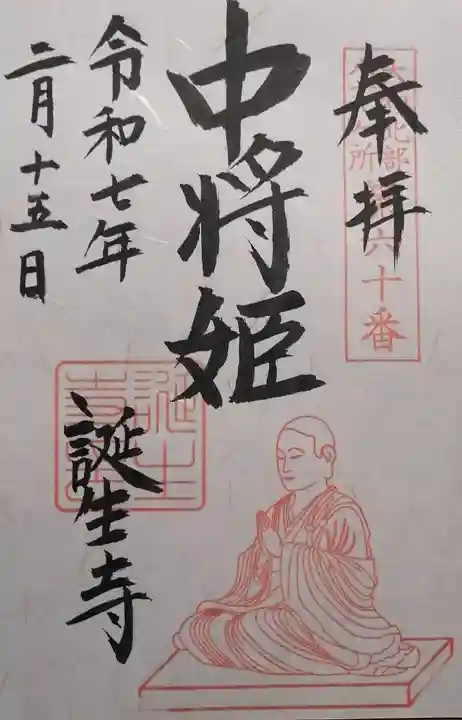 奉拝
六十番
中将姫
令和七年
二月十五日
誕生寺
誕生寺